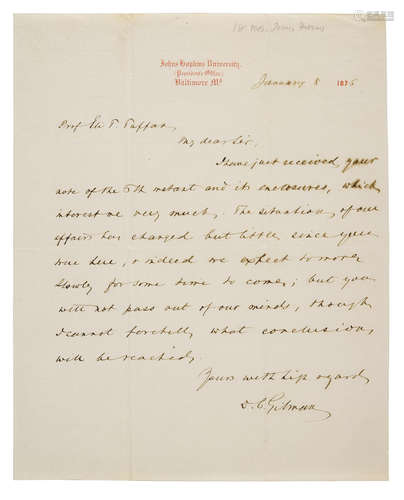 1st Pres. Johns Hopkins
Johns Hopkins University,
President's Office,
Baltimore Md
January 8 1876
Prof Eli T. Tappan,
My dear Sir,
I have just received your
note of the 5th instant and its enclosures, which
interest me very much. The situation of our
affairs has changed but little since you
were here, & indeed we expect to move
slowly for some time to come; but you
will not pass out of our minds, though
I cannot foretell what conclusion
will be reached.
Yours with high regard,
D. C. Gilman